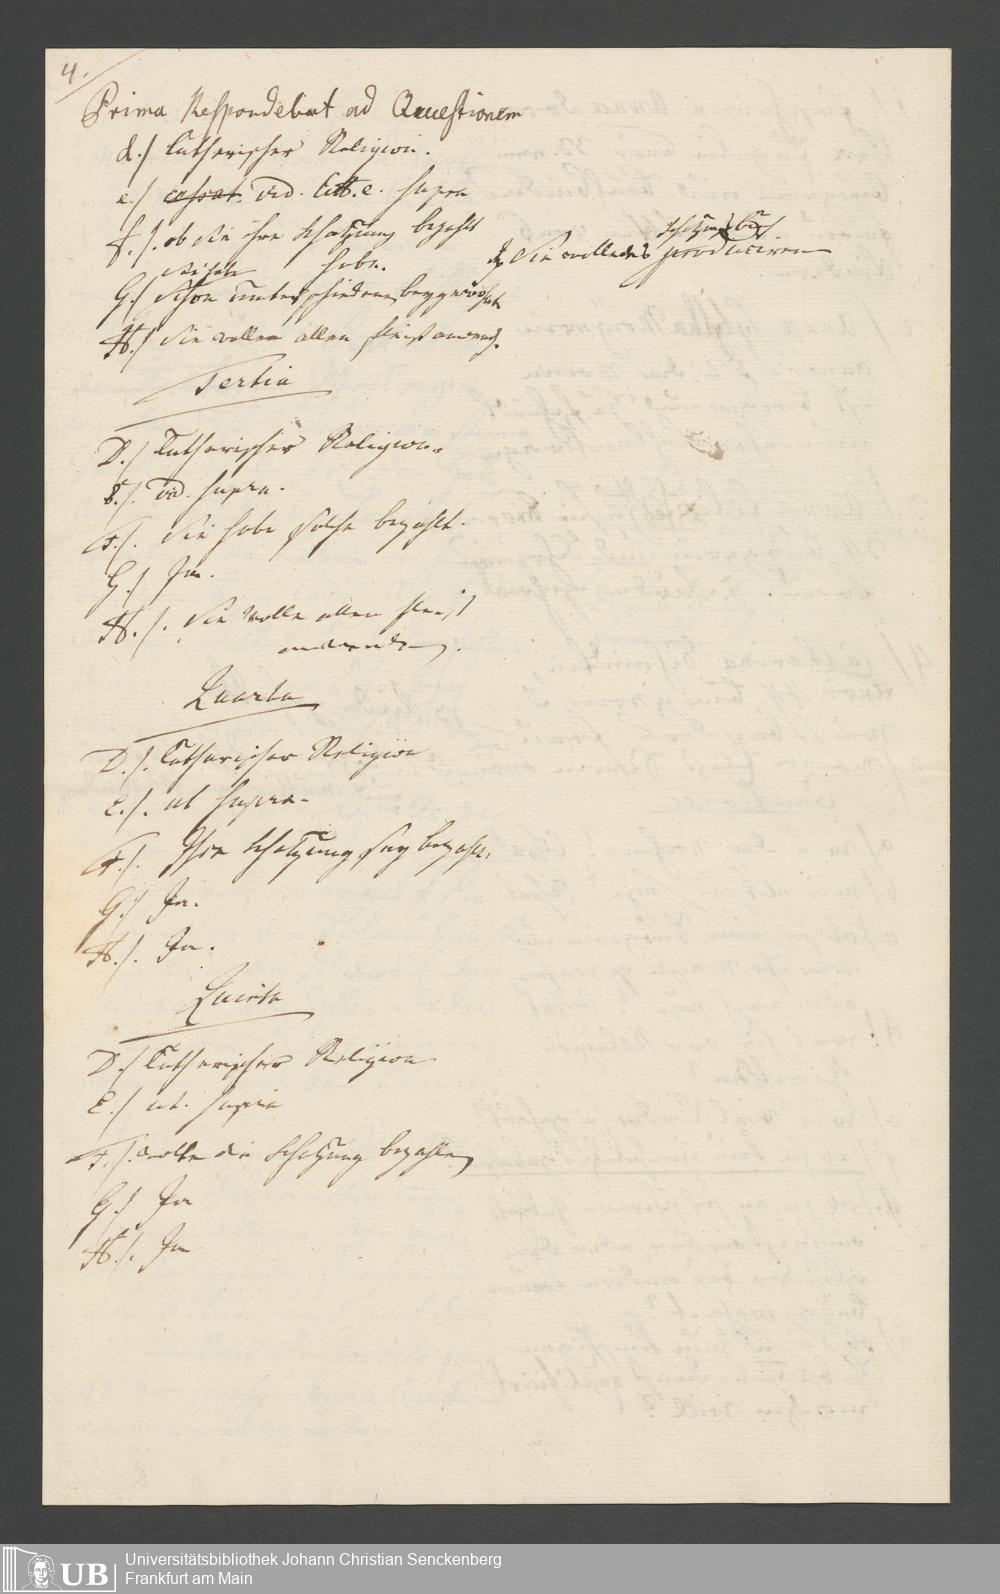 4.
Prima Respondebat ad Quaestionem
d./ Lutherischer Religion.
e./ cessat. vid. Litt. e. supra
f./. ob sie ihre Schatzung bezahlt
habe. Sie wolle das Schatzungsbuch produciren
G./ Sie habe schon unterschiedenen beygewohnt
H./ Sie wolle allen fleiß anwend.
Tertia
D./ Lutherischer Religion.
E./. vid. supra.
F./. Sie habe solche bezahlt.
G./ Ja.
H./. Sie wolle allen fleiß
anwenden.
Quarta
D./. Lutherischer Religion
E./. ut supra.
F./. Ihre Schatzung sey bezahlt,
G./ Ja.
H./. Ja.
Quinta
D./ Lutherischer Religion
E./ ut. supra
F./. wolle die Schatzung bezahlen
G./ Ja
H./. Ja
UB
Universitätsbibliothek Johann Christian Senckenberg
Frankfurt am Main